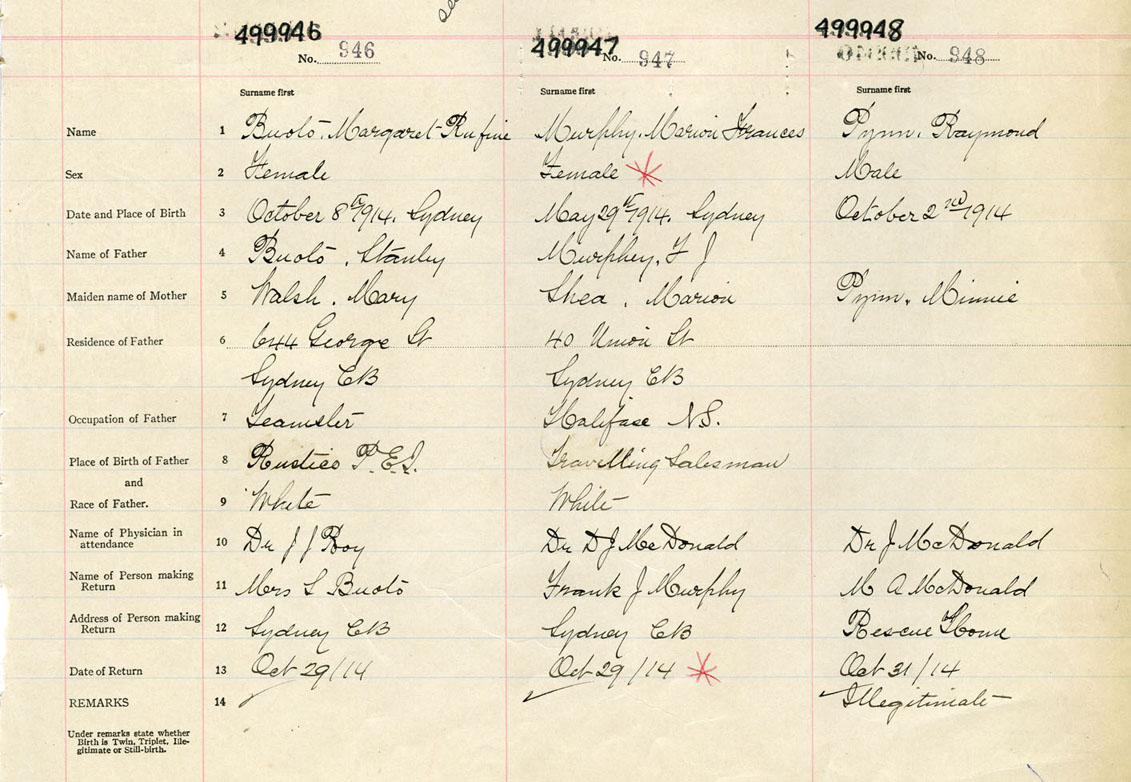 499946 499947 499948
No. 946 No. 947 No. 948
Surname first Surname first Surname first
Name 1 Buotò, Margaret Rufine Murphy, Marion Frances Pynn, Raymond
Sex 2 Female Female Male
Date and Place of Birth 3 October 8th 1914. Sydney May 29th 1914. Sydney October 2nd 1914
Name of Father 4 Buotò, Stanley Murphey, F J
Maiden name of Mother 5 Walsh, Mary Shea, Marion Pynn, Minnie
Residence of Father 6 644 George St 40 Union St
Sydney CB Sydney CB
Occupation of Father 7 Teamster Halifax NS.
Place of Birth of Father 8 Rustico P.E.I. Travelling Salesman
and
Race of Father. 9 White White
Name of Physician in
attendance 10 Dr J J Roy Dr D J McDonald Dr J McDonald
Name of Person making
Return 11 Mrs S Buotò Frank J Murphy M A McDonald
Address of Person making
Return 12 Sydney CB Sydney CB Rescue Home
Date of Return 13 Oct 29/14 Oct 29/14 Oct 31/14
REMARKS 14 Illegitimate
Under remarks state whether
Birth is Twin, Triplet, Ille-
gitimate or Still-birth.